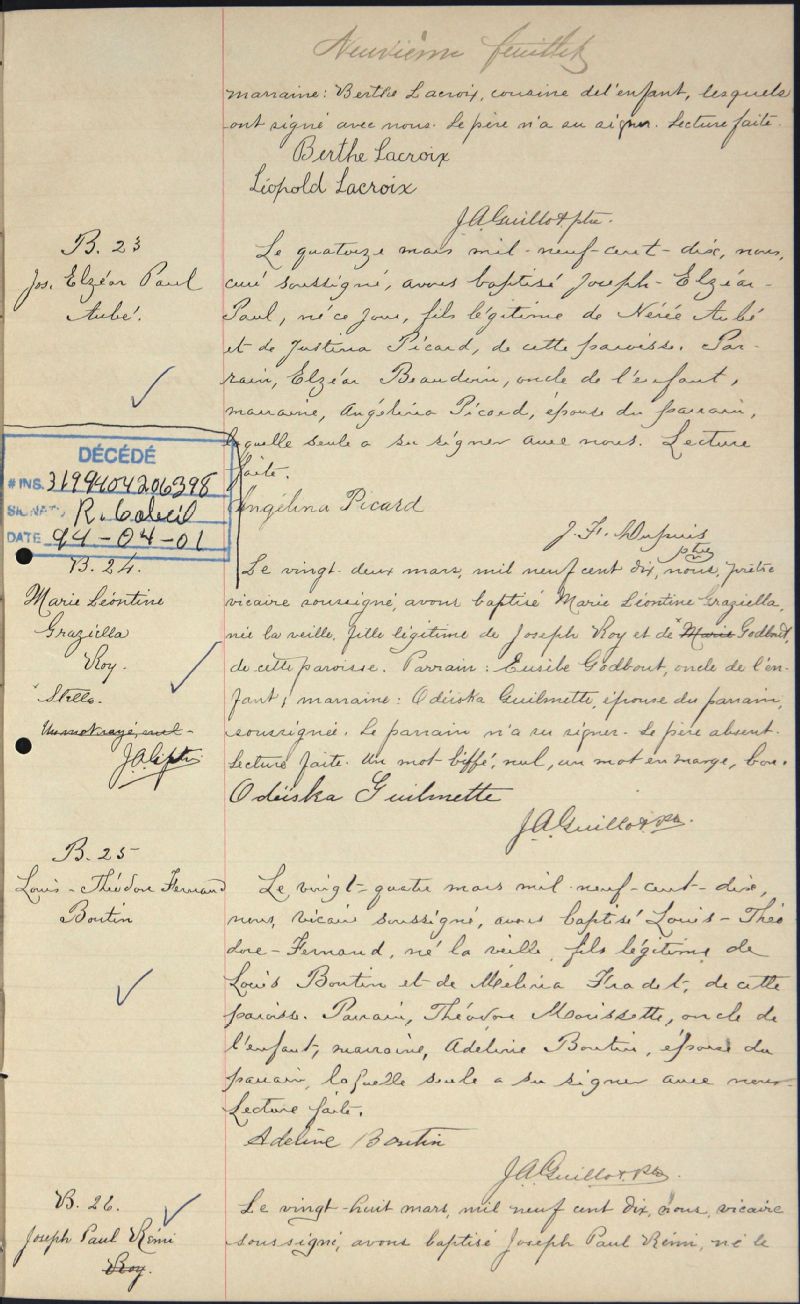 Neuvième feuillet
marraine: Berthe Lacroix, cousine de l'enfant, lesquels
ont signé avec nous. Le père n'a su signer. Lecture faite.
Berthe Lacroix
Léopold Lacroix
J.A. Guillot ptre.
B. 23
Jos. Elzéar Paul
Aubé.
Le quatorze mars mil-neuf-cent-dix, nous,
curé soussigné, avons baptisé Joseph-Elzéar-
Paul, né ce jour, fils légitime de Nérée Aubé
et de Justina Picard, de cette paroisse. Par-
rain, Elzéar Beaudoin, oncle de l'enfant,
marraine, Angélina Picard, épouse du parrain,
laquelle seule a su signer avec nous. Lecture
faite.
Angélina Picard
J. F. Dupuis
ptre
DÉCÉDÉ
# INS. 3199404206398
SIGNAT. R.
DATE 94-04-01
B. 24.
Marie Léontine
Graziella
Roy.
x Stella.
Un mot rayé, nul -
J.A.G. ptre
Le vingt-deux mars, mil neuf cent dix, nous, prêtre
vicaire soussigné, avons baptisé Marie Léontine Graziella,
née la veille, fille légitime de Joseph Roy et de x Marie Godbout,
de cette paroisse. Parrain: Eusèbe Godbout, oncle de l'en-
fant; marraine: Odéiska Guilmette, épouse du parrain,
soussignée. Le parrain n'a su signer. Le père absent.
Lecture faite. Un mot biffé, nul, un mot en marge, bon.
Odéiska Guilmette
J.A. Guillot ptre.
B. 25
Louis-Théodore Fernand
Boutin
Le vingt-quatre mars mil-neuf-cent-dix,
nous, vicaire soussigné, avons baptisé Louis-Théo-
dore-Fernand, né la veille, fils légitime de
Louis Boutin et de Mélina Fradet, de cette
paroisse. Parrain, Théodore Morissette, oncle de
l'enfant, marraine, Adéline Boutin, épouse du
parrain, laquelle seule a su signer avec nous.
Lecture faite.
Adeline Boutin
J.A. Guillot ptre.
B. 26.
Joseph Paul Rémi
Roy.
Le vingt-huit mars, mil neuf cent dix, nous, vicaire
soussigné, avons baptisé Joseph Paul Rémi, né le